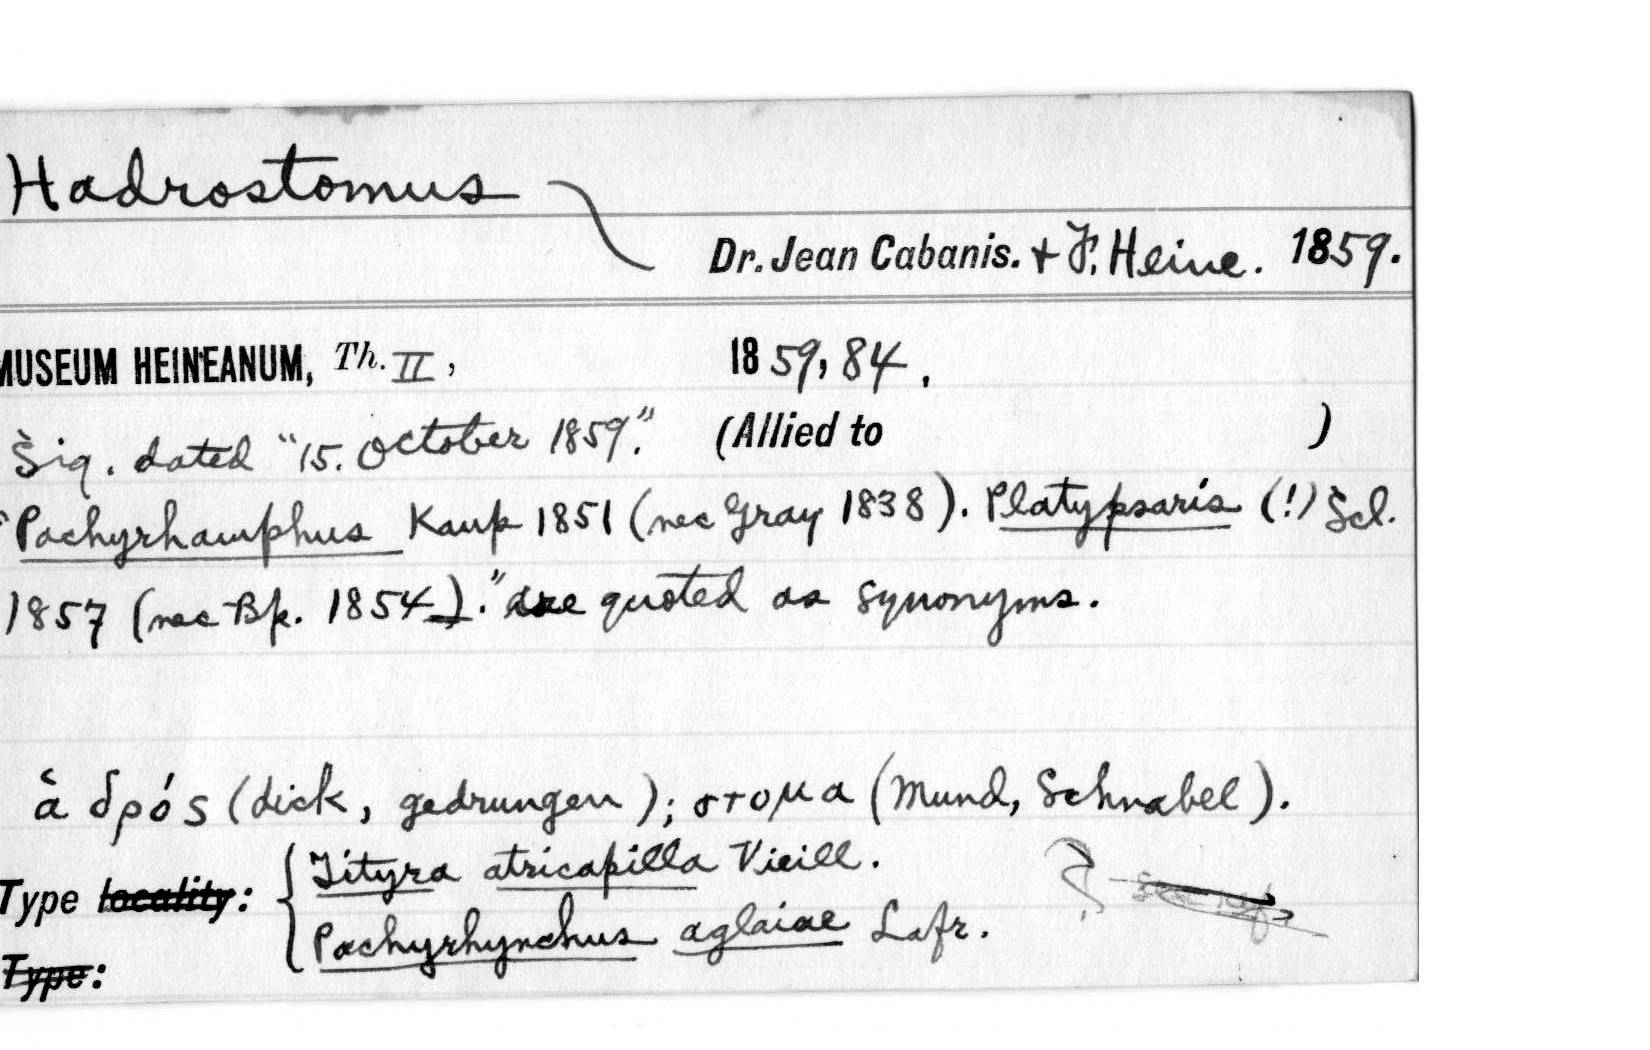 Hadrostomus
Dr. Jean Cabanis. + F. Heine. 1859.
MUSEUM HEINEANUM, Th. II, 1859, 84.
Sig. dated "15. October 1859." (Allied to )
"Pachyrhamphus Kaup 1851 (nec Gray 1838). Platypsaris (!) Scl.
1857 (nec Bp. 1854)." are quoted as synonyms.
ἁδρός (dick, gedrungen); στομα (Mund, Schnabel).
Type locality: Tityra atricapilla Vieill.
Pachyrhynchus aglaiae Lafr.
Type: